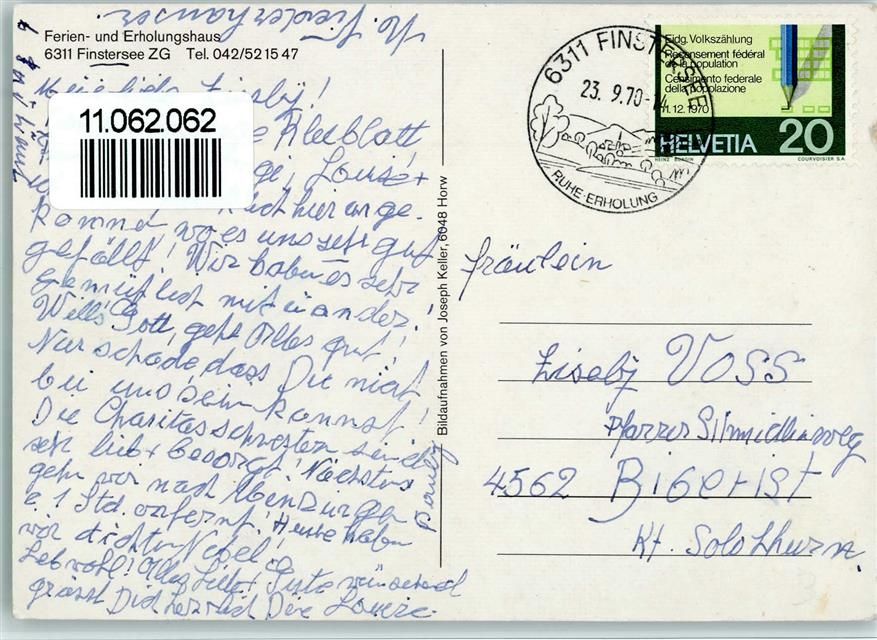 Ferien- und Erholungshaus
6311 Finstersee ZG Tel. 042/52 15 47
11.062.062
Kleeblatt
Louise +
hier ange-
kommen wo es uns sehr gut
gefällt! Wir haben es sehr
gemütlich mit einander!
Will's Gott, geht Alles gut!
Nur schade dass Du nicht
bei uns sein kannst!
Die Charitasschwestern sind
sehr lieb + besorgt! Nächstens
gehn wir nach
1 Std. entfernt. Heute haben
wir dichten Nebel!
Lebwohl! Alles Liebe + Gute wünschend
grüsst Dich herzlich Deine Louise.
Bildaufnahmen von Joseph Keller, 6048 Horw
6311 FINSTERSEE
23. 9.70-14
RUHE-ERHOLUNG
Eidg. Volkszählung
Recensement fédéral
de la population
Censimento federale
della popolazione
1.12.1970
HELVETIA 20
COURVOISIER S.A.
Fräulein
Liseby Voss
Pfarrer Schmidlinweg
4562 Biberist
Kt. Solothurn.